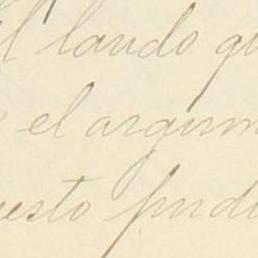 el laudo qu
el argum
uesto pudi